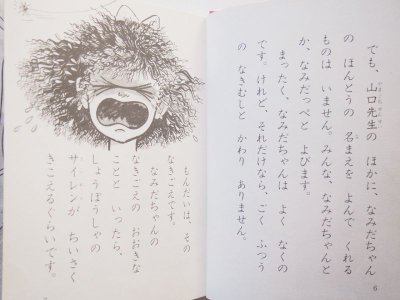 でも、山口先生の ほかに、なみだちゃん
の ほんとうの 名まえを よんで くれる
ものは いません。みんな、なみだちゃんと
か、なみだっぺと よびます。
まったく、なみだちゃんは よく なくの
です。けれど、それだけなら、ごく ふつう
の なきむしと かわり ありません。
6
もんだいは、その
なきこえです。
なみだちゃんの
なきこえの おおきな
ことと いったら、
しょうぼうしゃの
サイレンが ちいさく
きこえるぐらいです。